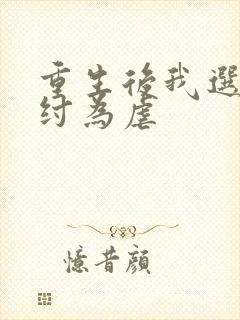 重生後我選
紂為虐
憶昔顏